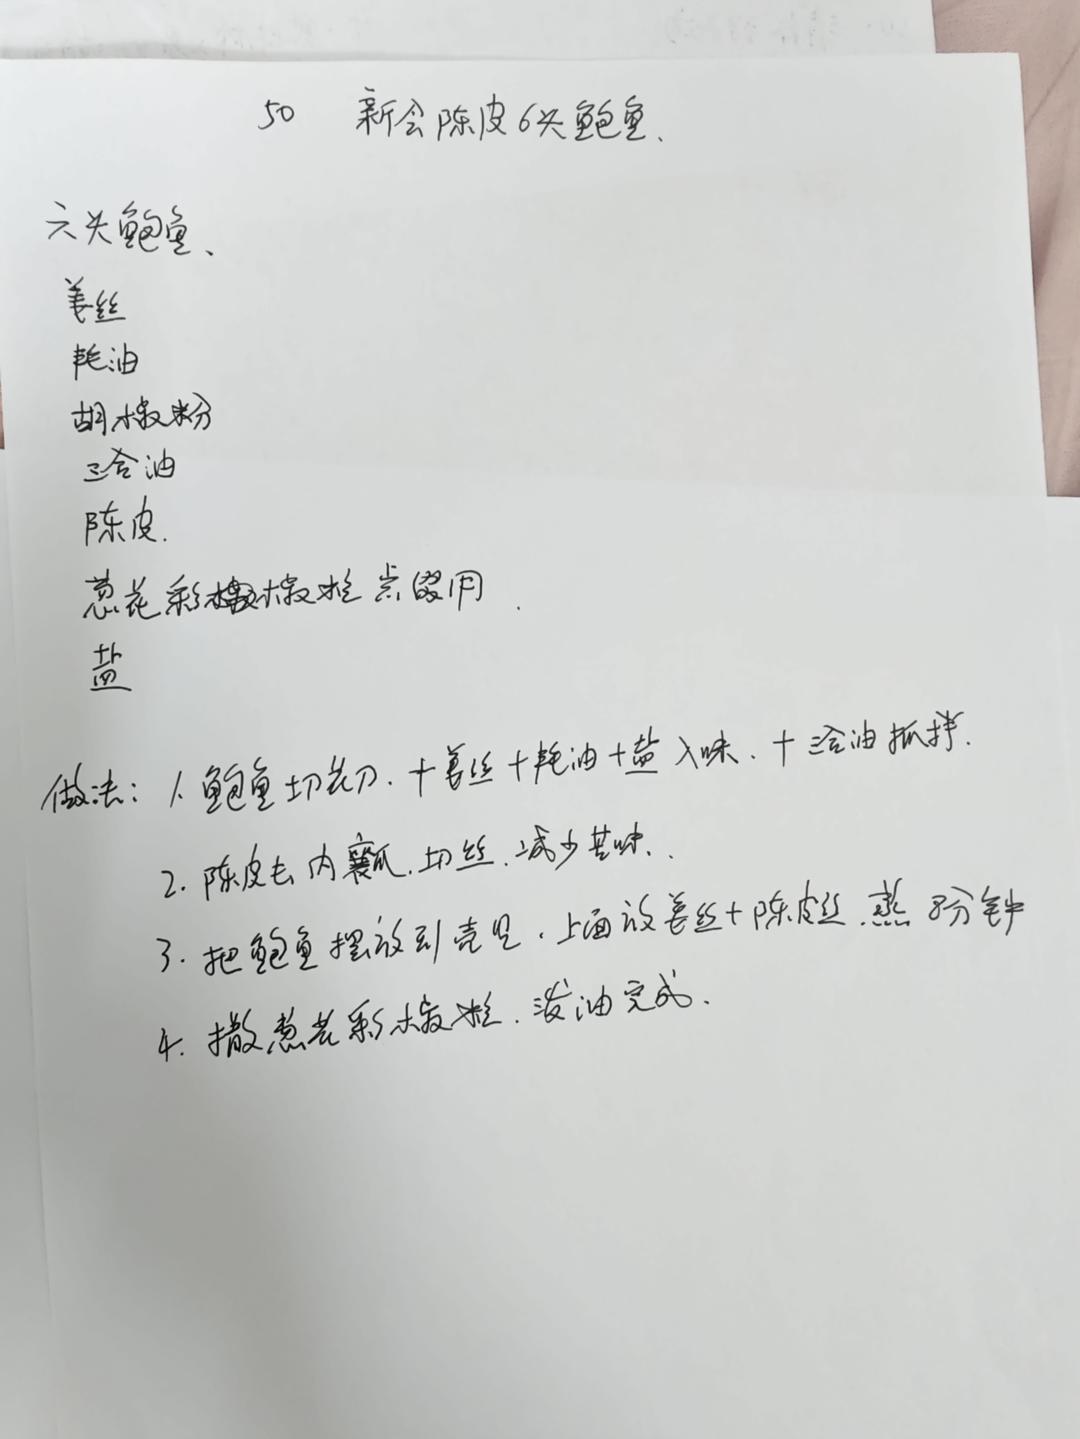 50 新会陈皮6头鲍鱼、
六头鲍鱼、
姜丝
耗油
胡椒粉
三合油
陈皮.
葱花彩椒粒点缀用.
盐
做法: 1. 鲍鱼切花刀.+姜丝+耗油+盐入味.+三合油抓拌.
2. 陈皮去内瓤.切丝.减少苦味..
3. 把鲍鱼摆放到壳里.上面放姜丝+陈皮丝.蒸8分钟
4. 撒葱花彩椒粒.泼油完成.